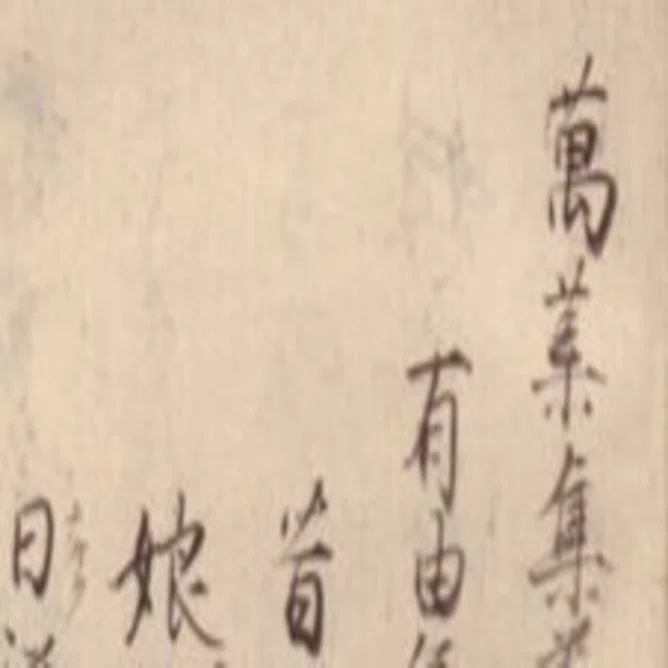 萬葉集
有由
首
娘
日